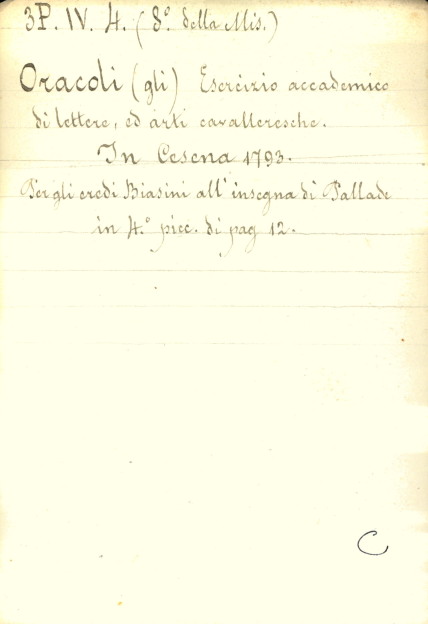 3P. IV. 4. (8º della Mis.)
Oracoli (gli) Esercizio accademico
di lettere, ed arti cavalleresche.
In Cesena 1793.
Per gli eredi Biasini all' insegna di Pallade
in 4.º picc. di pag 12.
C